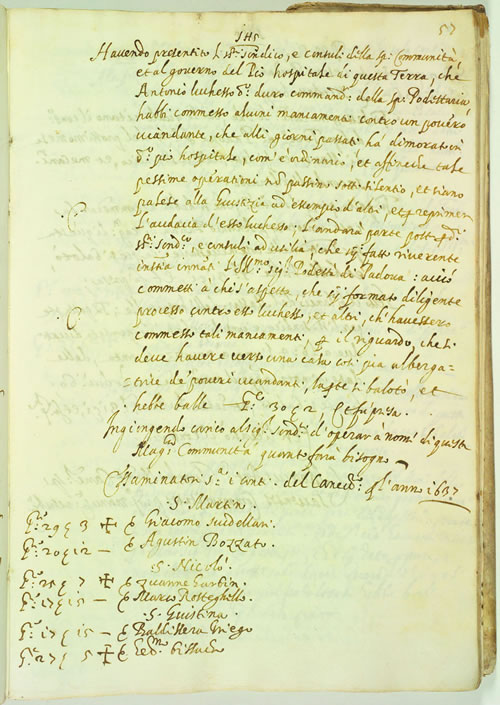 57
IHS
Havendo presentito li sp: sindico, e consuli della sp: Communità,
et al governo del Pio hospitale di questa Terra, che
Antonio luchesso d:° duro command: della sp: Podestaria,
habbi commesso alcuni mancamenti contro un povero
viandante, che alli giorni passati hà dimorato in
d:° pio hospitale, com'è ordinario, et affinche tale
pessime operationi nō passino sotto silentio, et siano
palese alla Giustizia ad essempio d'altri, et reprimer
l'audacia d'esso luchesso; L'andarà parte posta
sp: sind:co, e consuli che sij fatto riverente
instā innāti l'Ill:mo sig: Podestà di Padova: acciò
commetti à chi s'aspetta, che sij formato diligente
processo contro esso luchesso, et altri, ch'havessero
commesso tali mancamenti, il riguardo, che si
deve havere verso una casa così pia alberga-
trice de poveri viandanti, laqle si balotò, et
hebbe balle — P:° 30 C 2, et fù presa.
Ingiongendo carico al sig: sind:co d'operar à nome di questa
Mag:ca Communità quanto farà bisogno
Essaminator del Caned:° l'anno 1637
S. Martin.
P:° 29 C 3 + Giacomo
P:° 20 C 12 — Agustin Bozzato.
S. Nicolò.
P:° 25 C 7 + Zuanne Garbin.
P:° 17 C 15 — Marco Rosteghello.
S. Giustina.
P:° 17 C 15 — Battistera Griego
P:° 27 C 5 +